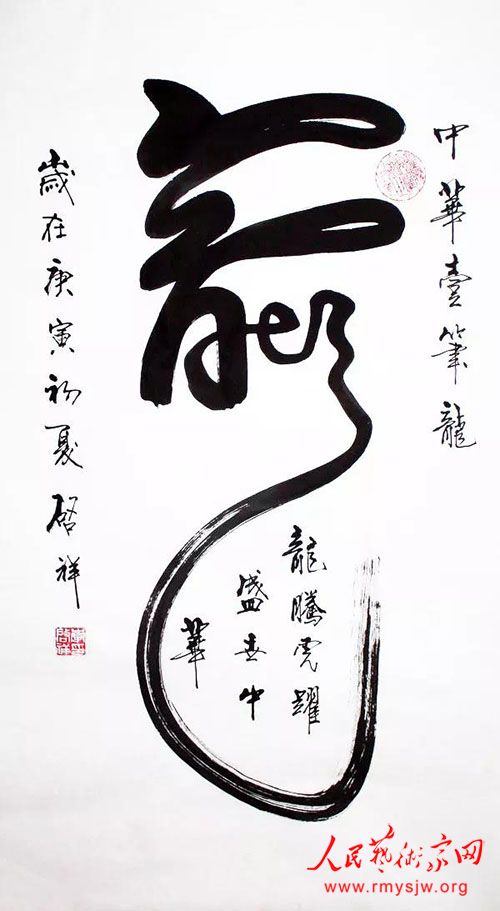 中華壹筆龍
龍
龍騰虎躍
盛世中
華
歲在庚寅初夏啓祥
人民藝術家网
www.rmysjw.org